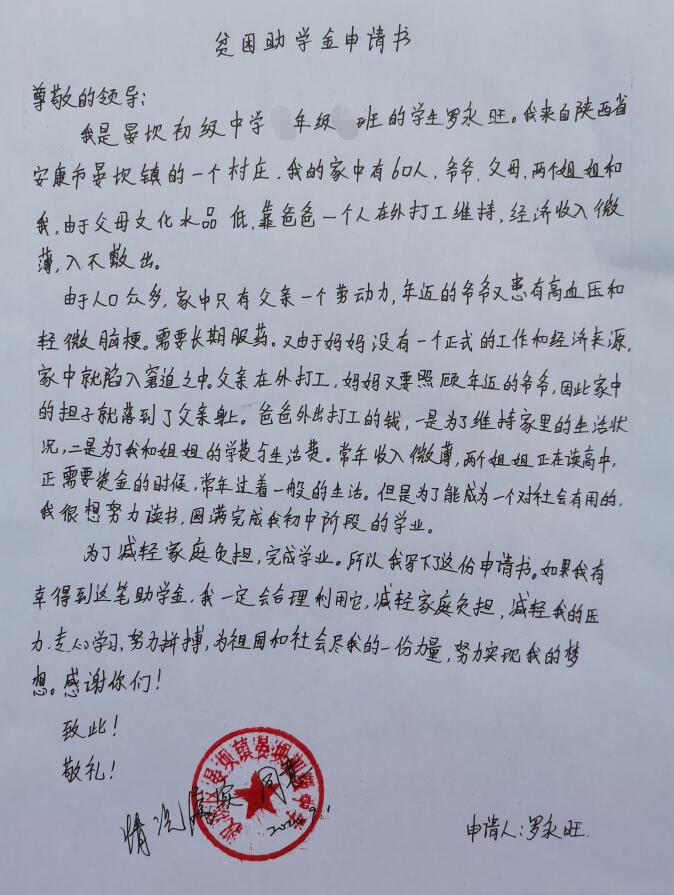 贫困助学金申请书
尊敬的领导:
我是晏坝初级中学 年级 班的学生罗永旺。我来自陕西省
安康市晏坝镇的一个村庄.我的家中有6口人,爷爷.父母,两个姐姐和
我,由于父母文化水品低,靠爸爸一个人在外打工维持,经济收入微
薄,入不敷出。
由于人口众多,家中只有父亲一个劳动力,年迈的爷爷又患有高血压和
轻微脑梗。需要长期服药。又由于妈妈没有一个正式的工作和经济来源,
家中就陷入窘迫之中。父亲在外打工,妈妈又要照顾年迈的爷爷,因此家中
的担子就落到了父亲身上。爸爸外出打工的钱,一是为了维持家里的生活状
况,二是为了我和姐姐的学费与生活费。常年收入微薄,两个姐姐正在读高中,
正需要资金的时候,常年过着一般的生活。但是为了能成为一个对社会有用的,
我很想努力读书,圆满完成我初中阶段的学业。
为了减轻家庭负担,完成学业。所以我写下了这份申请书。如果我有
幸得到这笔助学金,我一定会合理利用它,减轻家庭负担,减轻我的压
力.专心学习,努力拼搏,为祖国和社会尽我的一份力量,努力实现我的梦
想。感谢你们!
致此!
敬礼!
情况属实 同意
申请人:罗永旺.